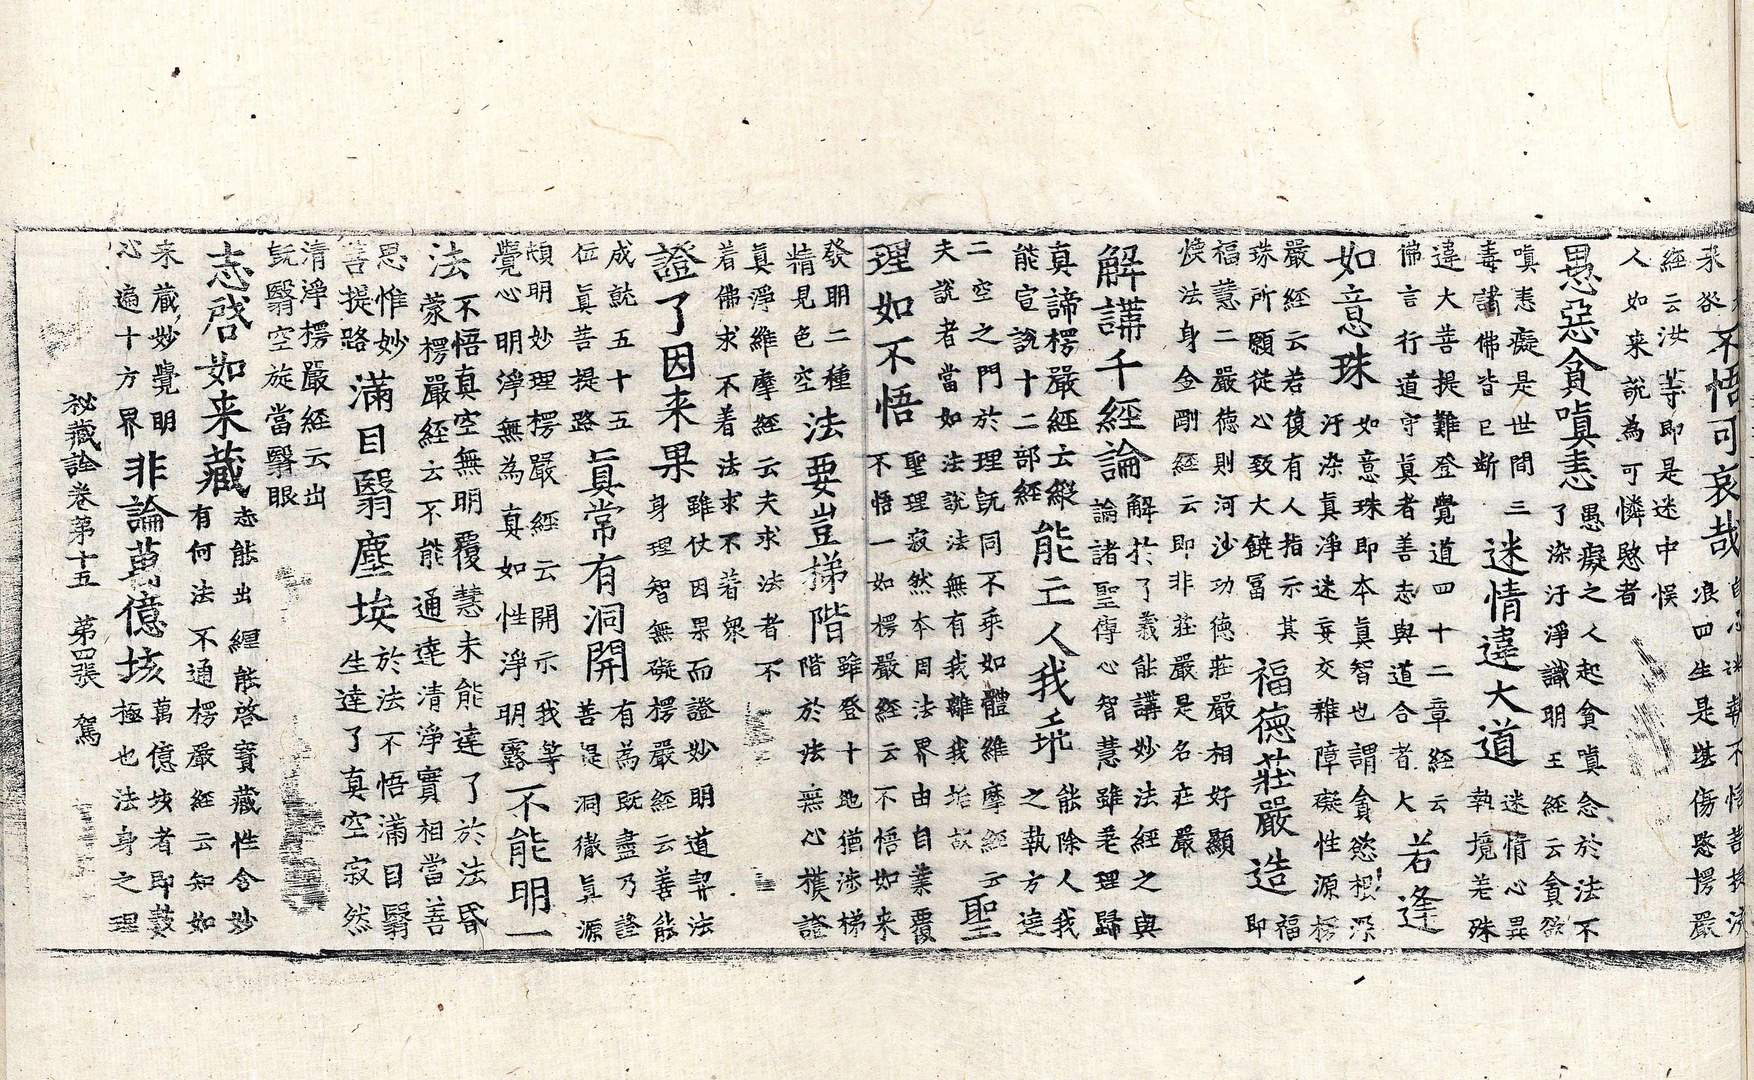 来欲
不悟可哀哉
自心迷執不悟菩提流
浪四生是堪傷愍楞嚴
經云汝等即是迷中悮
人如来說為可憐愍者
愚惡貪嗔恚
愚癡之人起貪嗔念於法不
了染汙淨識明王經云貪欲
嗔恚癡是世間三
毒諸佛皆已斷
迷情違大道
迷情心異
執境差殊
違大菩提難登覺道四十二章經云
佛言行道守眞者善志與道合者大
若逢
如意珠
如意珠即本眞智也謂貪慾根深
汙染眞淨迷妄交雜障礙性源楞
嚴經云若復有人指示其
珠所願從心致大饒冨
福德莊嚴造
福
即
福慧二嚴德則河沙功德莊嚴相好顯
煥法身金剛經云即非莊嚴是名莊嚴
解講千經論
解於了義能講妙法經之與
論諸聖傳心智慧雖差理歸
真諦楞嚴經云縱
能宣說十二部經
能亡人我坑
能除人我
之執方達
二空之門於理旣同不乖如體維摩經云
夫說者當如法說法無有我離我垢故
聖
理如不悟
聖理寂然本周法界由自業覆
不悟一如楞嚴經云不悟如来
發明二種
精見色空
法要豈梯階
雖登十地猶涉梯
階於法無心權證
眞淨維摩經云夫求法者不
着佛求不着法求不着衆
證了因来果
雖仗因果而證妙明道契法
身理智無礙楞嚴經云善能
成就五十五
位眞菩提路
眞常有洞開
有為旣盡乃證
菩提洞徹眞源
頓明妙理楞嚴經云開示我等
覺心明淨無為真如性淨明露
不能明一
法
不悟真空無明覆慧未能達了於法昏
蒙楞嚴經云不能通達清淨實相當善
思惟妙
菩提路
滿目翳塵埃
於法不悟滿目翳
生達了真空寂然
清淨楞嚴經云出
旣翳空旋當翳眼
志啓如来藏
志能出纏能啓寳藏性含妙
有何法不通楞嚴經云知如
来藏妙覺明
心遍十方界
非論萬億垓
萬億垓者即數
極也法身之理
秘藏詮卷第十五　第四張　駕